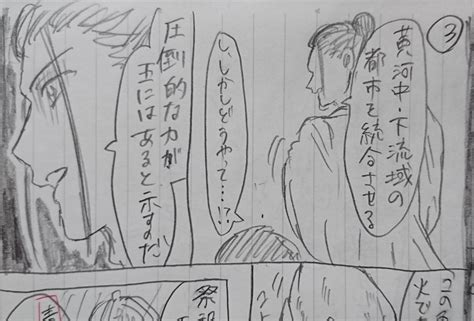 ③
黄河中・下流域の
都市を統合させる
し、しかしどうやって…!?
圧倒的な力が
王にはあると示すのだ
この
火で
祭祀